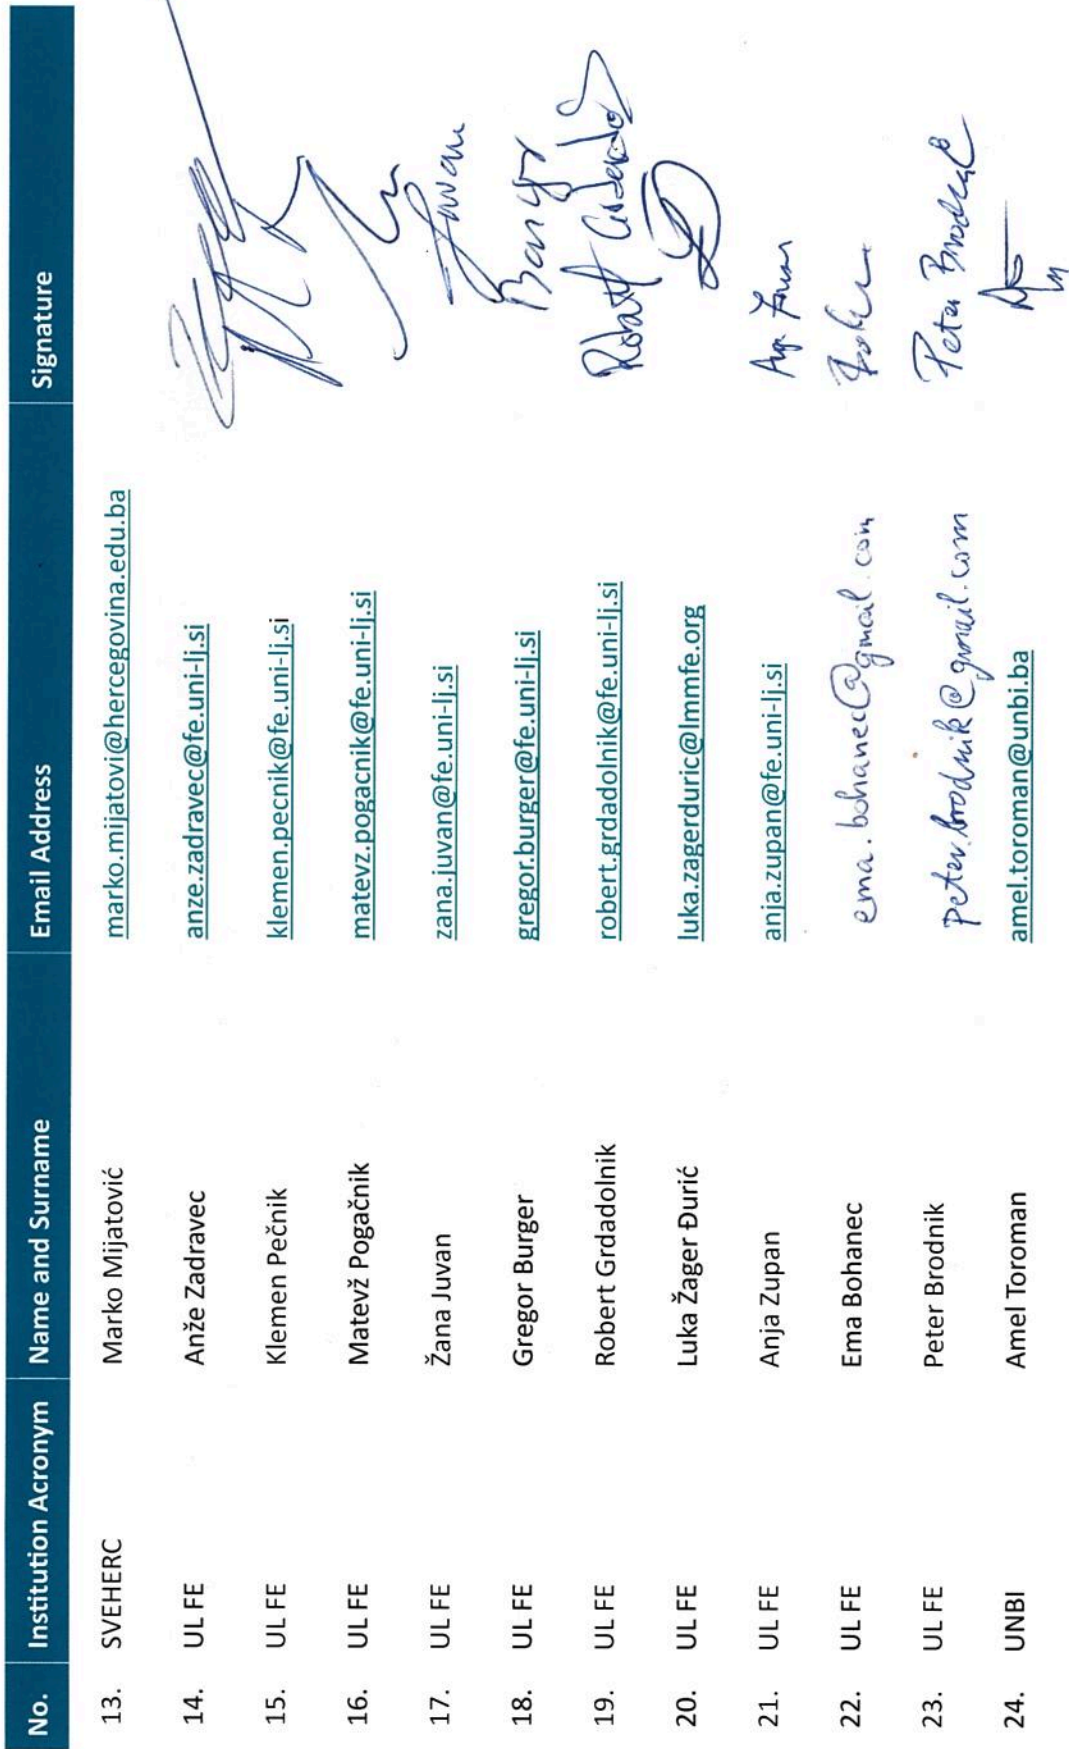 No. Institution Acronym Name and Surname Email Address Signature
13. SVEHERC Marko Mijatović marko.mijatovi@hercegovina.edu.ba
14. UL FE Anže Zadravec anze.zadravec@fe.uni-lj.si
15. UL FE Klemen Pečnik klemen.pecnik@fe.uni-lj.si
16. UL FE Matevž Pogačnik matevz.pogacnik@fe.uni-lj.si
17. UL FE Žana Juvan zana.juvan@fe.uni-lj.si Juvan
18. UL FE Gregor Burger gregor.burger@fe.uni-lj.si
19. UL FE Robert Grdadolnik robert.grdadolnik@fe.uni-lj.si Robert
20. UL FE Luka Žager Đurić luka.zagerduric@lmmfe.org
21. UL FE Anja Zupan anja.zupan@fe.uni-lj.si
22. UL FE Ema Bohanec ema.bohanec@gmail.com
23. UL FE Peter Brodnik peter.brodnik@gmail.com Peter Brodnik
24. UNBI Amel Toroman amel.toroman@unbi.ba